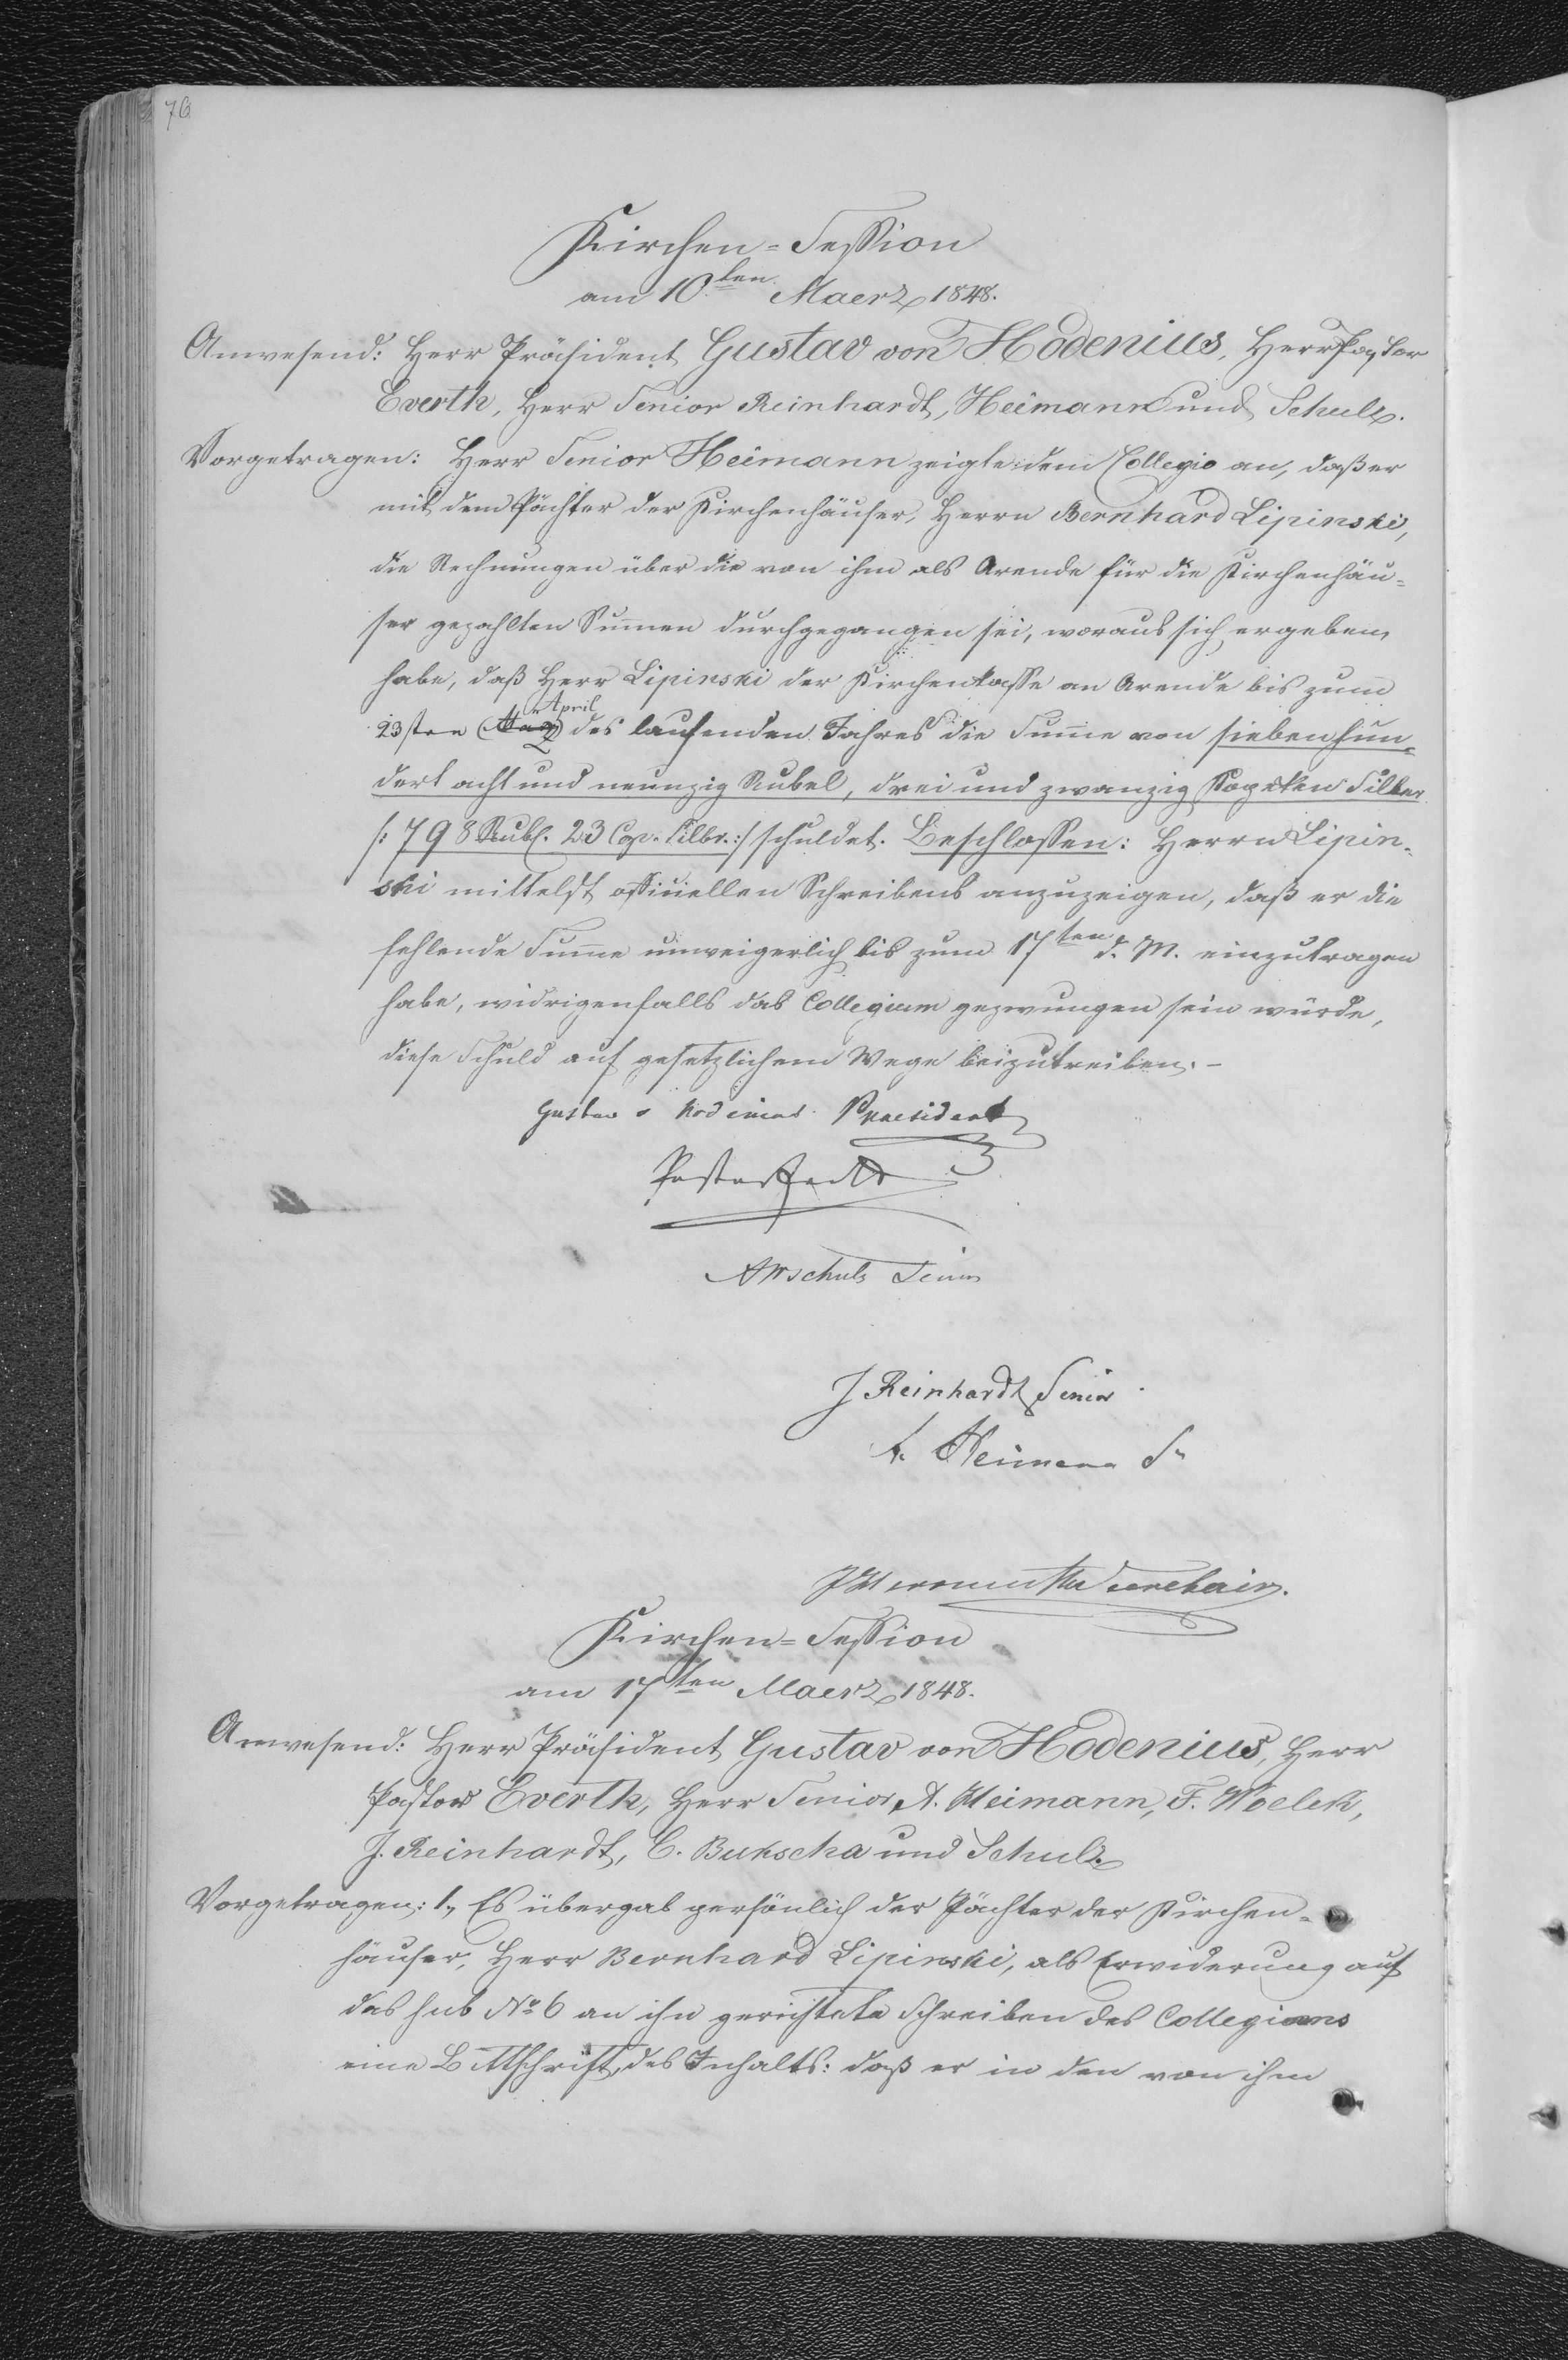 76
Kirchen-Session
am 10ten Maerz 1848.
Anwesend: Herr Präsident Gustav von Hodenius, Herr Pastor
Everth, Herr Senior Reinhardt, Heimann und Schulz.
Vorgetragen: Herr Senior Heimann zeigte dem Collegio an, daß er
mit dem Pächter der Kirchenhäuser, Herrn Bernhard Lipinski,
die Rechnungen über die von ihm als Arende für die Kirchenhäu=
ser gezahlten Sum̄en durchgegangen sei, woraus sich ergeben
habe, daß Herr Lipinski der Kirchenkasse an Arende bis zum
April
23sten des laufenden Jahres die Sum̄e von siebenhun=
dert acht und neunzig Rubel, drei und zwanzig Kopeken Silber
/: 798 Rubl. 23 Cop. Silbr. :/ schuldet. Beschlossen: Herrn Lipin=
ski mittelst officiellen Schreibens anzuzeigen, daß er die
fehlende Sum̄e unweigerlich bis zum 17ten d. M. einzutragen
habe, widrigenfalls das Collegium gezwungen sein würde,
diese Schuld auf gesetzlichem Wege beizutreiben. –
Gustav v Hodenius Praesident
Pastor Everth
Schulz Senior
J Reinhardt Senior
A. Heimann Sr
Secretair.
Kirchen-Session
am 17ten Maerz 1848.
Anwesend: Herr Präsident Gustav von Hodenius, Herr
Pastor Everth, Herr Senior A. Heimann, F. Woelck,
J. Reinhardt, C. Bukscha und Schulz.
Vorgetragen: 1., Es übergab persönlich der Pächter der Kirchen=
häuser, Herr Bernhard Lipinski, als Erwiderung auf
das sub No 6 an ihn gerichtete Schreiben des Collegiums
eine Bittschrift des Inhalts: daß er in den von ihm